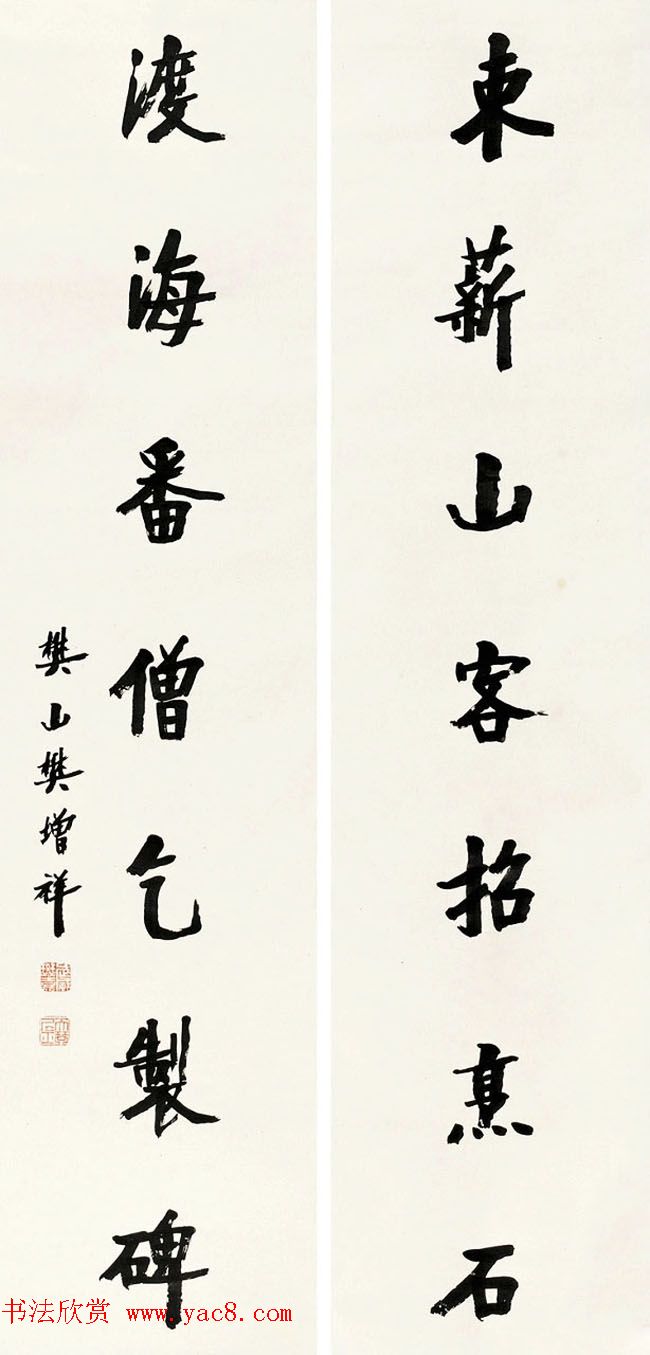 束薪山客招烹石
渡海番僧乞製碑
樊山樊增祥
书法欣赏 www.yac8.com